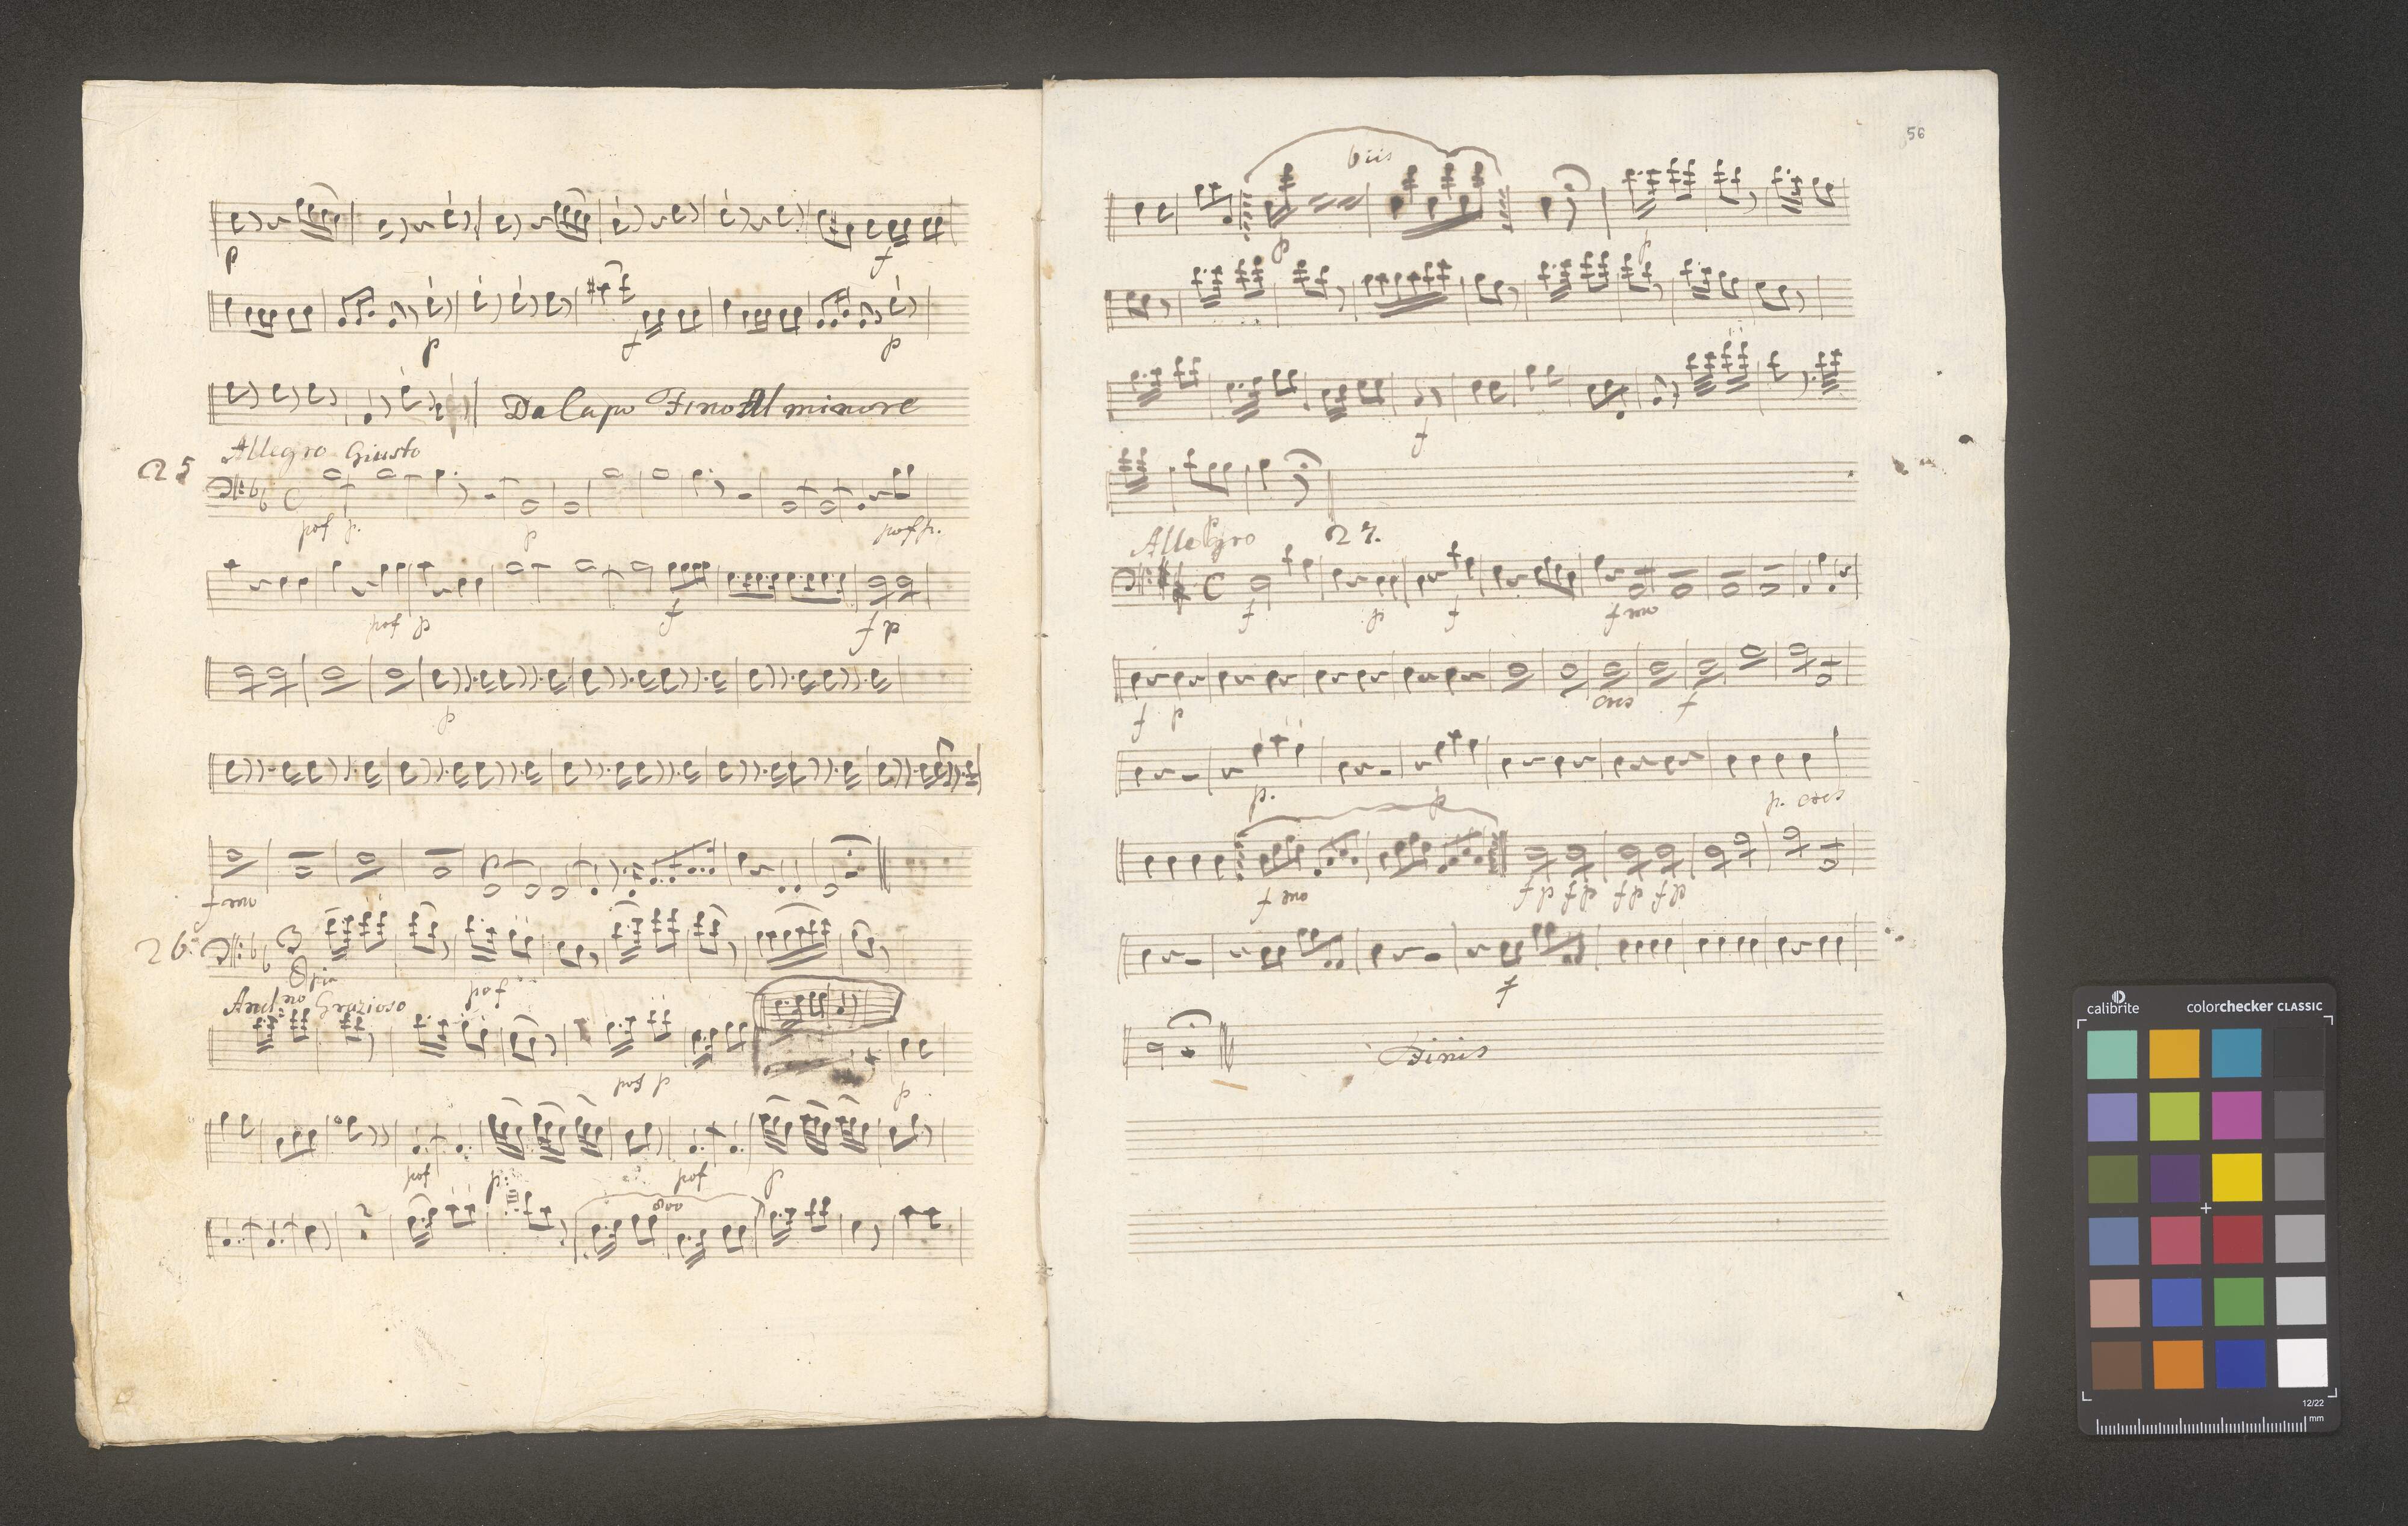 p f
p f p
Da Capo Fino Al minore
Allegro Giusto
25
pof p. p pof p.
pof p f f p
p
fmo
26:
pia pof
And:no Grazioso
pof p p
pof p: pof p
56
biis
p p
f
Allegro 27.
f p f fmo
f p cres f
p. p p. cres
fmo f p f p f p f p
f
Finis
calibrite colorchecker CLASSIC
12/22
mm